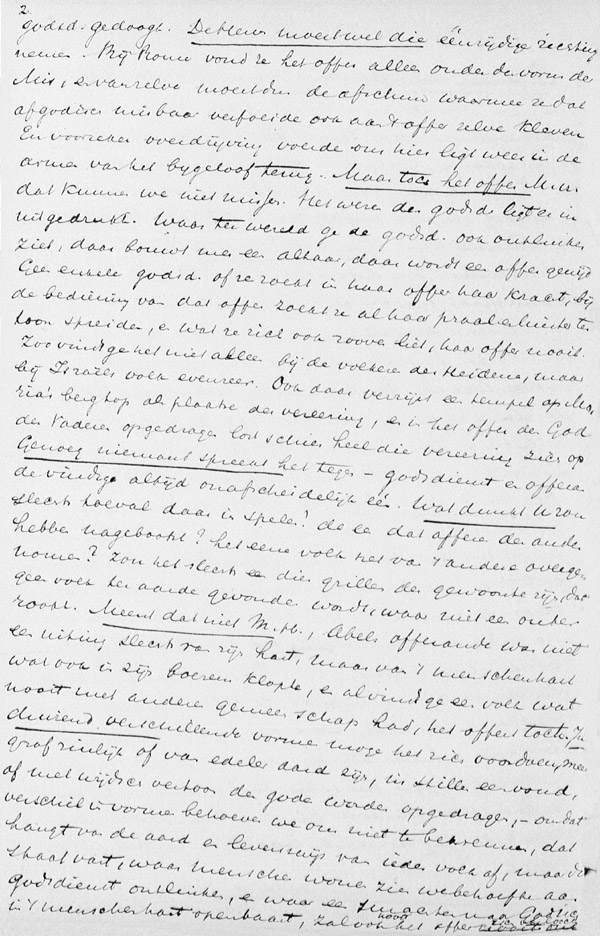 2.
godsd. gedoogt. De Hem moest wel die éénzijdige richting
nemen. Bij Rome vond ze het offer alleen onder de vorm der
Mis, en vanzelve moest dus de afschuw waarmee ze dat
afgodisch misbaar verfoeide ook aan 't offer zelve kleven
En voorzeker overdrijving voerde ons hier ligt weer in de
armen van het bijgeloof terug. Maar toch het offer M.H.
dat kunnen we niet missen. Het wezen der godsd. ligt er in
uitgedrukt. Waar ter wereld ge de godsd. ook ontluiken
ziet, daar bouwt men een altaar, daar wordt een offer gewijd
Geen enkele godsd. of ze zocht in haar offer haar kracht, bij
de bediening van dat offer zocht ze al haar praal en luister ten
toon spreiden, en wat ze zich ook rooven liet, haar offer nooit.
Zoo vindt ge het niet alleen bij de volken der Heidenen, maar
bij Israëls volk evenzeer. Ook daar verrijst een tempel op Mo-
ria's bergtop als plaatse der vereering, en in het offer den God
der Vaderen opgedragen lost schier heel die vereering zich op
Genoeg niemant spreekt het tegen – godsdienst en offeran
de vindt ge altijd onafscheidelijk één. Wat dunkt U zou
slechts toeval daar in spelen? de een dat offeren den ander
hebben nagebootst? het eene volk het van 't andere overgen
nomen? Zou het slechts een dier grillen der gewoonte zijn, dat
geen volk ter aarde gevonden wordt, waar niet een outer
rookt. Meent dat niet M.H., Abels offerande was niet
een uiting slechts van zijn hart, maar van 't menschenhart
wat ook in zijn boezem klopte, en al vindt ge een volk wat
nooit met anderen gemeenschap had, het offert toch. In
duizend verschillende vormen moge het zich voordoen, meer
grof zinlijk of van edeler aard zijn, in stillen eenvoud,
of met wijdsch vertoon den goden worden opgedragen, – om dat
verschil in vormen behoeven we ons niet te bekreunen, dat
hangt van de aard en levenswijs van ieder volk af, maar dit
staat vast, waar menschen wonen zien we behoefte aan
godsdienst ontluiken, en waar een smachten naar God zich
in 't menschenhart openbaart, zal ook het offer nooit